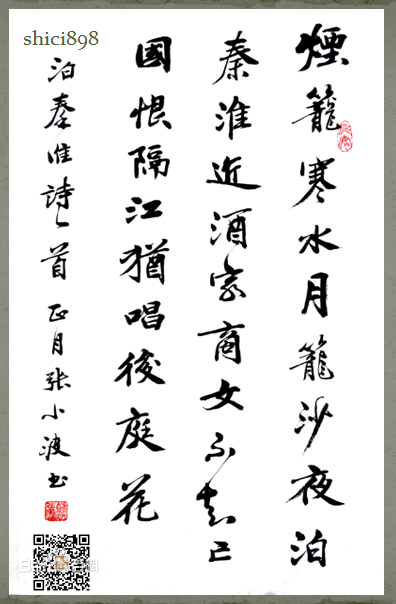 shici898
煙籠寒水月籠沙夜泊
秦淮近酒家商女不知亡
國恨隔江猶唱後庭花
泊秦淮詩一首 正月张小波书